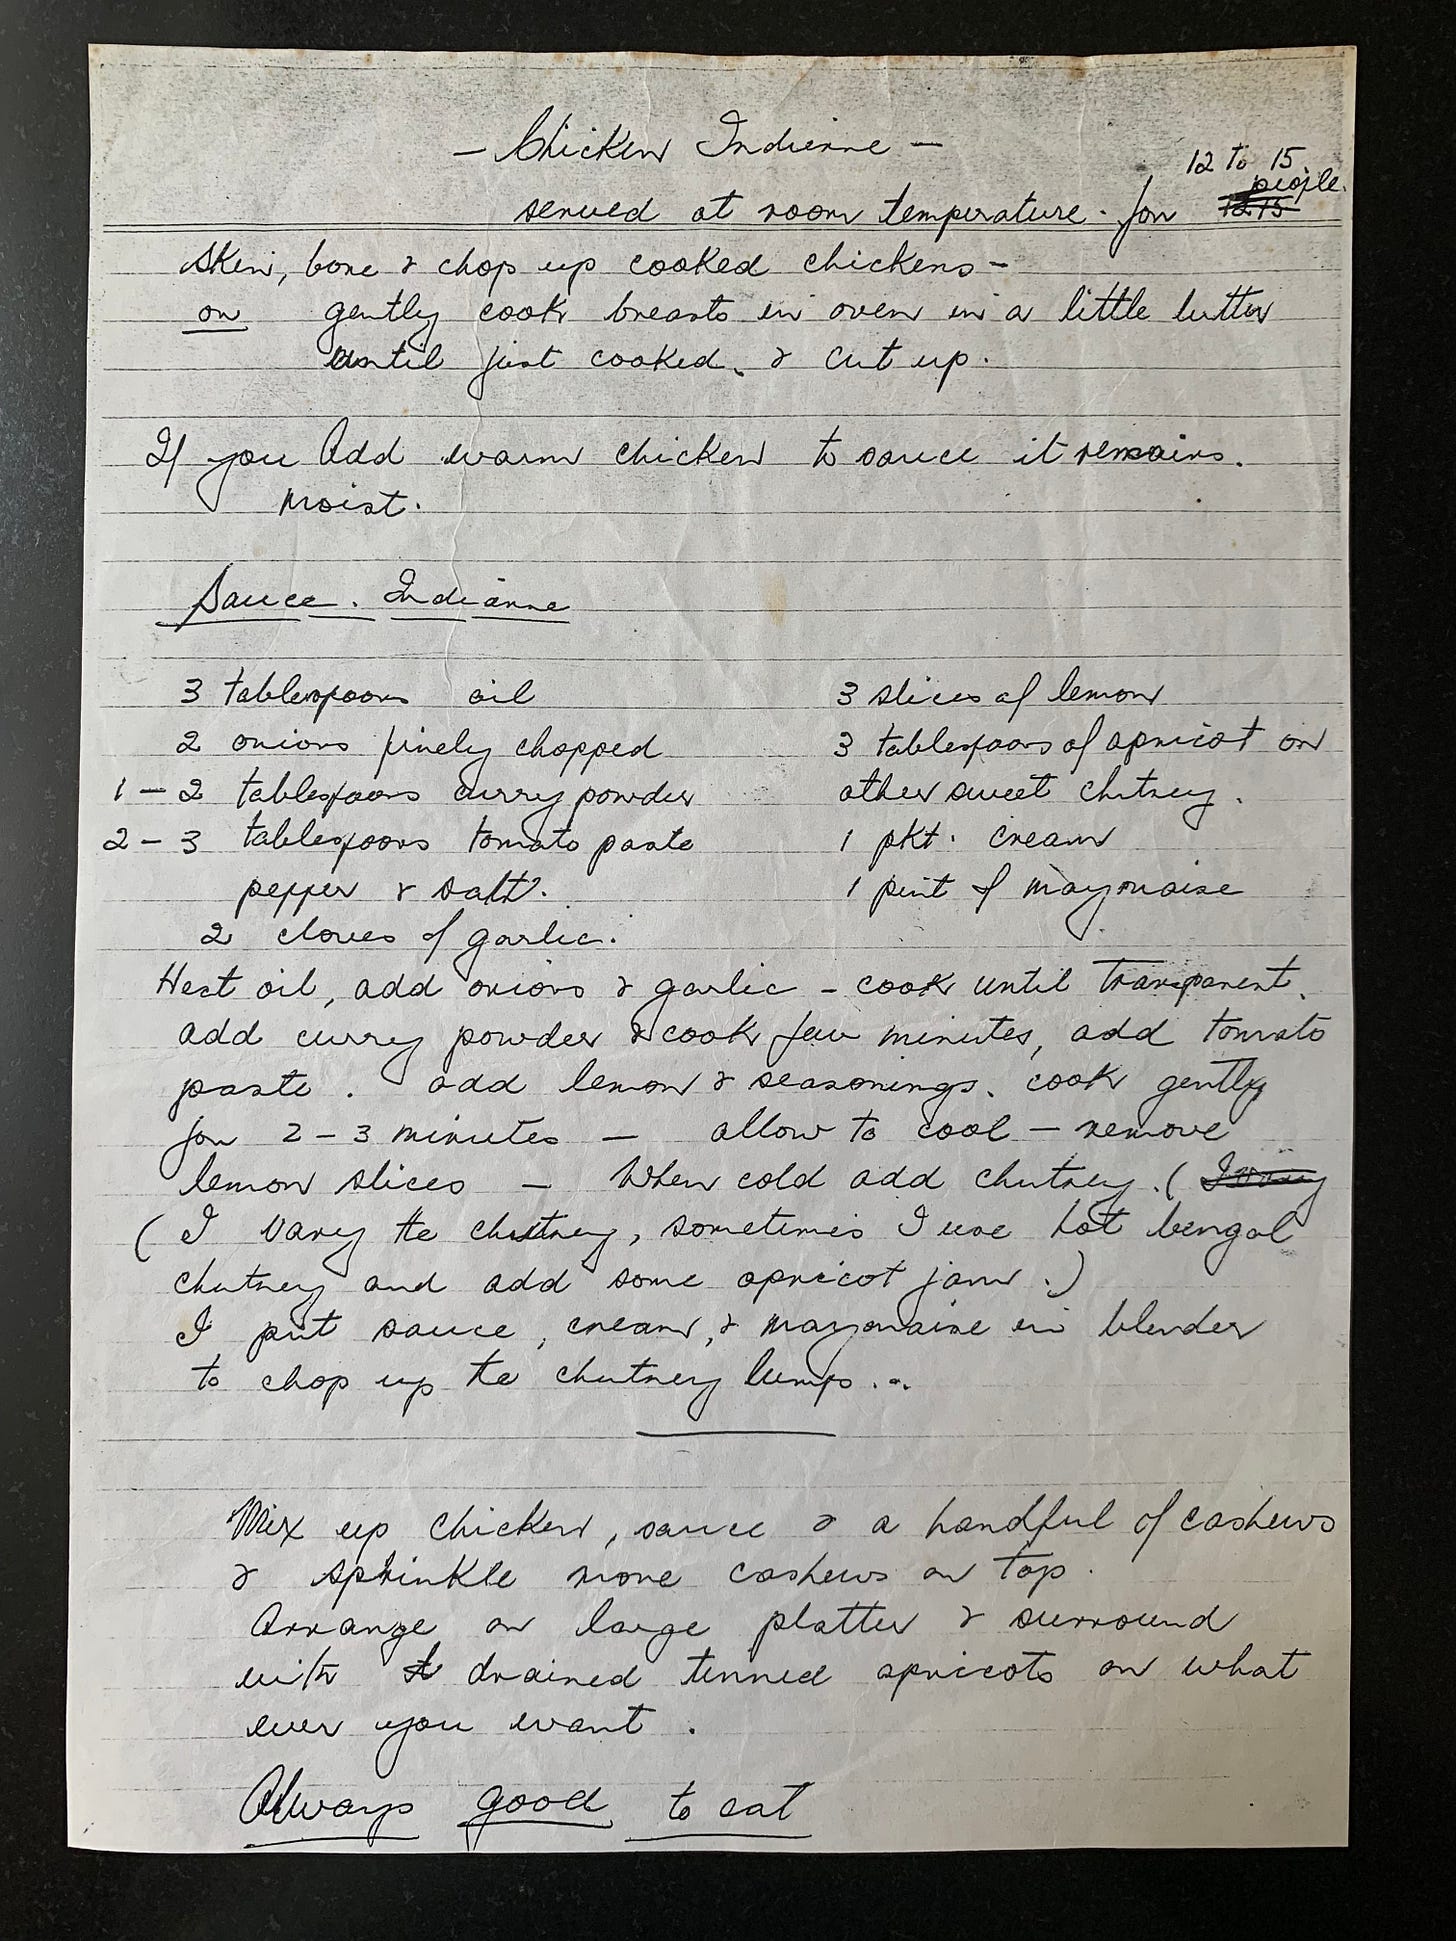 — Chicken Indienne —
12 to 15
people.
served at room temperature. for
Skin, bone & chop up cooked chickens –
or gently cook breasts in oven in a little butter
until just cooked. & cut up.
If you Add warm chicken to sauce it remains.
moist.
Sauce. Indianne
3 tablespoons oil
2 onions finely chopped
1 – 2 tablespoons curry powder
2 – 3 tablespoons tomato paste
pepper & salt.
2 cloves of garlic.
3 slices of lemon
3 tablespoons of apricot or
other sweet chutney.
1 pkt. cream
1 pint of mayonaise
Heat oil, add onions & garlic – cook until transparent.
add curry powder & cook few minutes, add tomato
paste. add lemon & seasonings. cook gently
for 2 – 3 minutes – allow to cool – remove
lemon slices – When cold add chutney. (
( I vary the chutney, sometimes I use hot bengal
chutney and add some apricot jam.)
I put sauce, cream, & mayonaise in blender
to chop up the chutney lumps...
Mix up chicken, sauce & a handful of cashews
& sprinkle more cashews on top.
Arrange on large platter & surround
with drained tinned apricots or what
ever you want.
Always good to eat